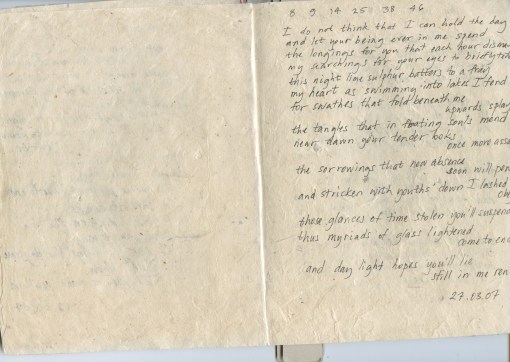 8 9 14 25 38 46
I do not think that I can hold the day
and let your being ever in me spend
the longings for you that each hour
my searchings for your eyes to
this night lime sulphur batters to a fray
my heart as swimming into lakes I fend
for swathes that fold beneath me
upwards
the tangles that in floating souls mend
near dawn your tender looks
once more
the sorrowings that now absence
soon will
and stricken with youths' down I lashed
these glances of time stolen you'll suspend
thus myriads of glass lightered
come to
and day light hopes you'll lie
still in me
27.03.07